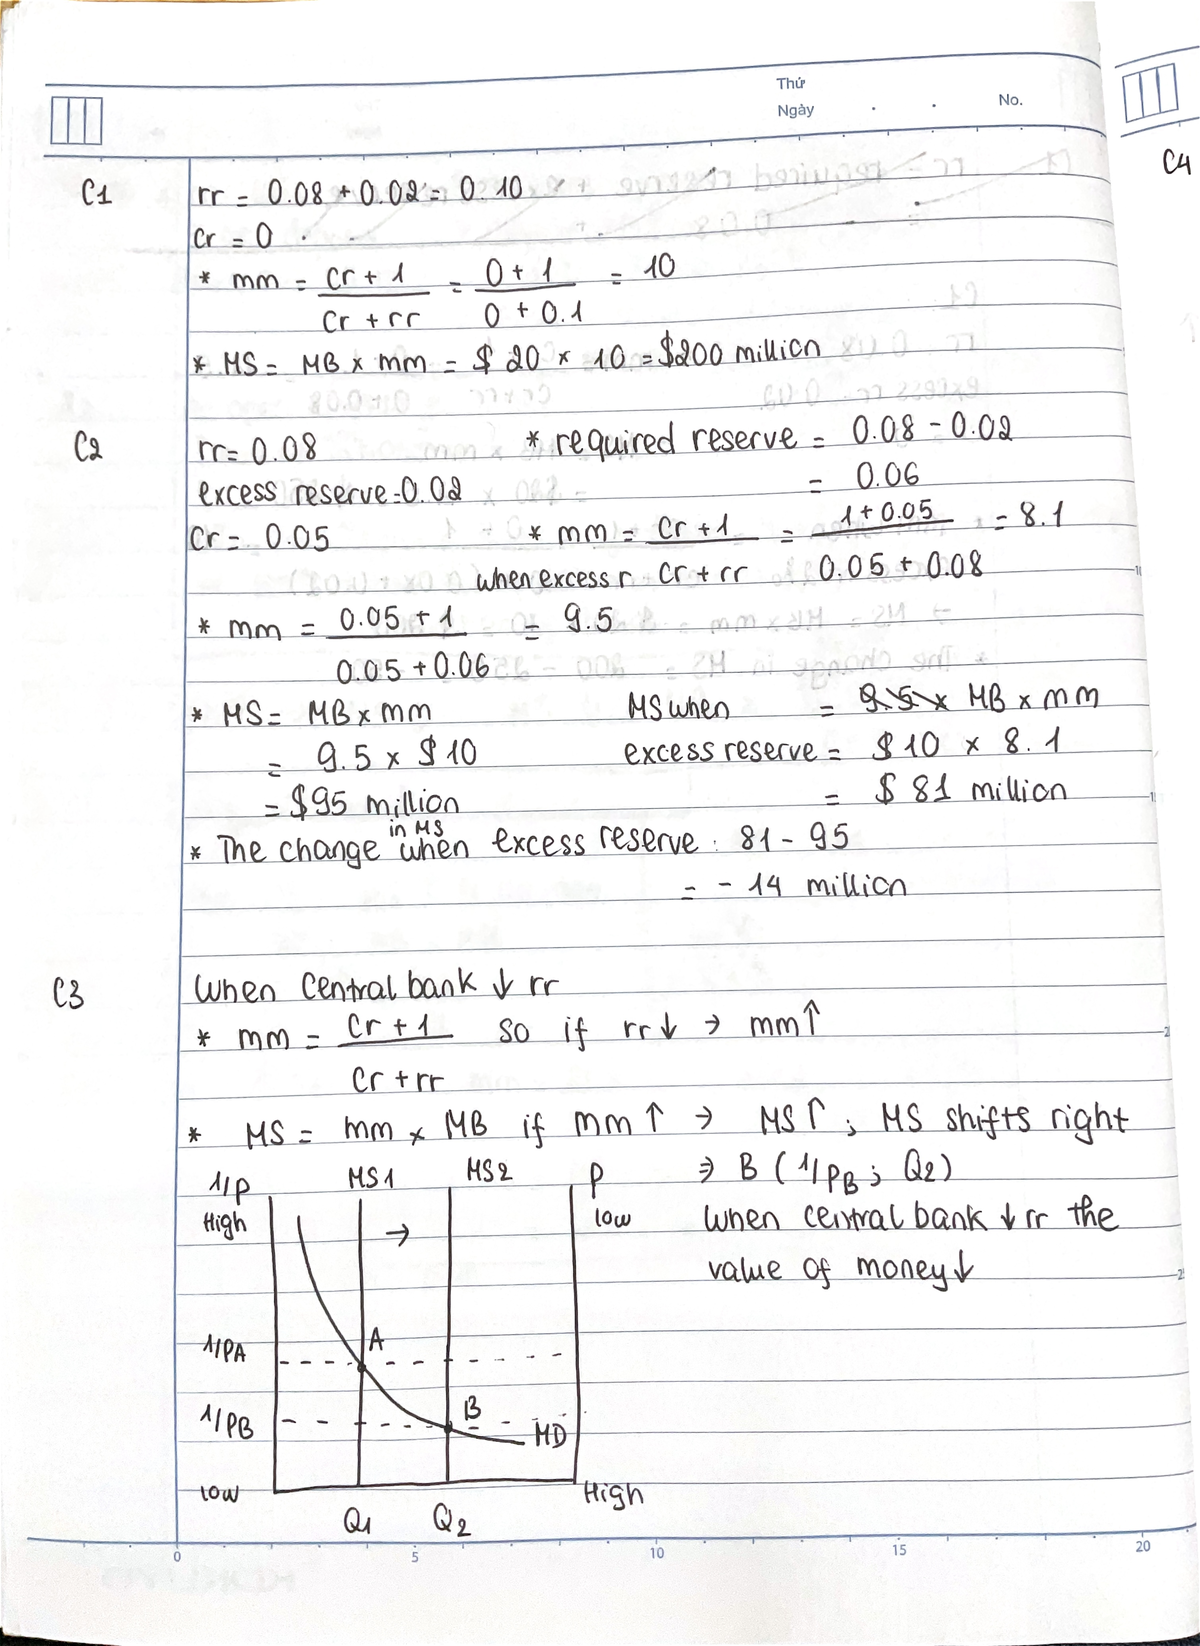 Thứ
Ngày . . No.
C4
C1 rr = 0.08 + 0.02 = 0.10
Cr = 0
* mm = Cr + 1 / Cr + rr = 0 + 1 / 0 + 0.1 = 10
* MS = MB x mm = $ 20 x 10 = $200 million
C2 rr = 0.08 * required reserve = 0.08 - 0.02
excess reserve = 0.02 = 0.06
Cr = 0.05 * mm = Cr + 1 / Cr + rr = 1 + 0.05 / 0.05 + 0.08 = 8.1
when excess r
* mm = 0.05 + 1 / 0.05 + 0.06 = 9.5
* MS = MB x mm MS when = MB x mm
= 9.5 x $ 10 excess reserve = $ 10 x 8.1
= $95 million = $ 81 million
* The change in MS when excess reserve : 81 - 95
= - 14 million
C3 When Central bank ↓ rr
* mm = Cr + 1 / Cr + rr so if rr ↓ → mm ↑
* MS = mm x MB if mm ↑ → MS ↑ ; MS shifts right
1/P MS1 MS2 P ⇒ B ( 1/PB ; Q2 )
High → low when central bank ↓ rr the
value of money ↓
1/PA A
1/PB B MD
low High
Q1 Q2
0 5 10 15 20